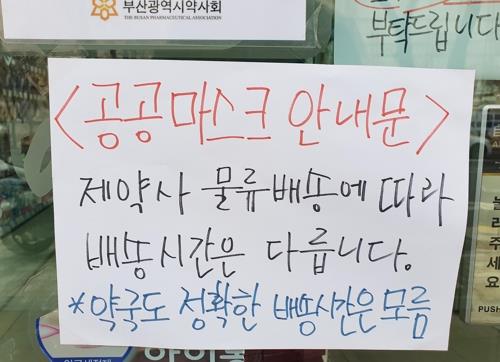 부산광역시약사회
THE BUSAN PHARMACEUTICAL ASSOCIATION
부탁드립니다
<공공마스크 안내문>
제약사 물류배송에 따라
배송시간은 다릅니다.
*약국도 정확한 배송시간은 모름
PUSH